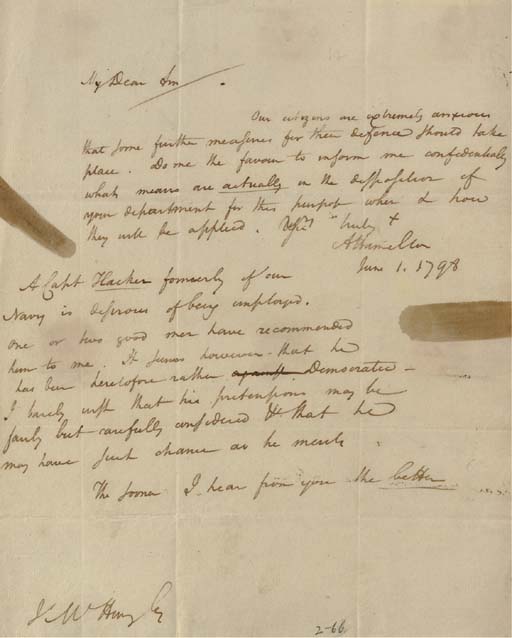 My Dear Sir
Our citizens are extremely anxious
that some further measures for their defence should take
place. Do me the favour to inform me confidentially
what means are actually in the disposition of
your department for this purpose when & how
they will be applied. Yrs truly
A Hamilton
June 1. 1798
A Capt Hacker formerly of our
Navy is desirous of being employed.
one or two good men have recommended
him to me. It seems however that he
has been heretofore rather Democratic –
I barely wish that his pretensions may be
fairly but carefully considered & that he
may have such chance as he merits.
The sooner I hear from you the better
Js McHenry Esq
2-66